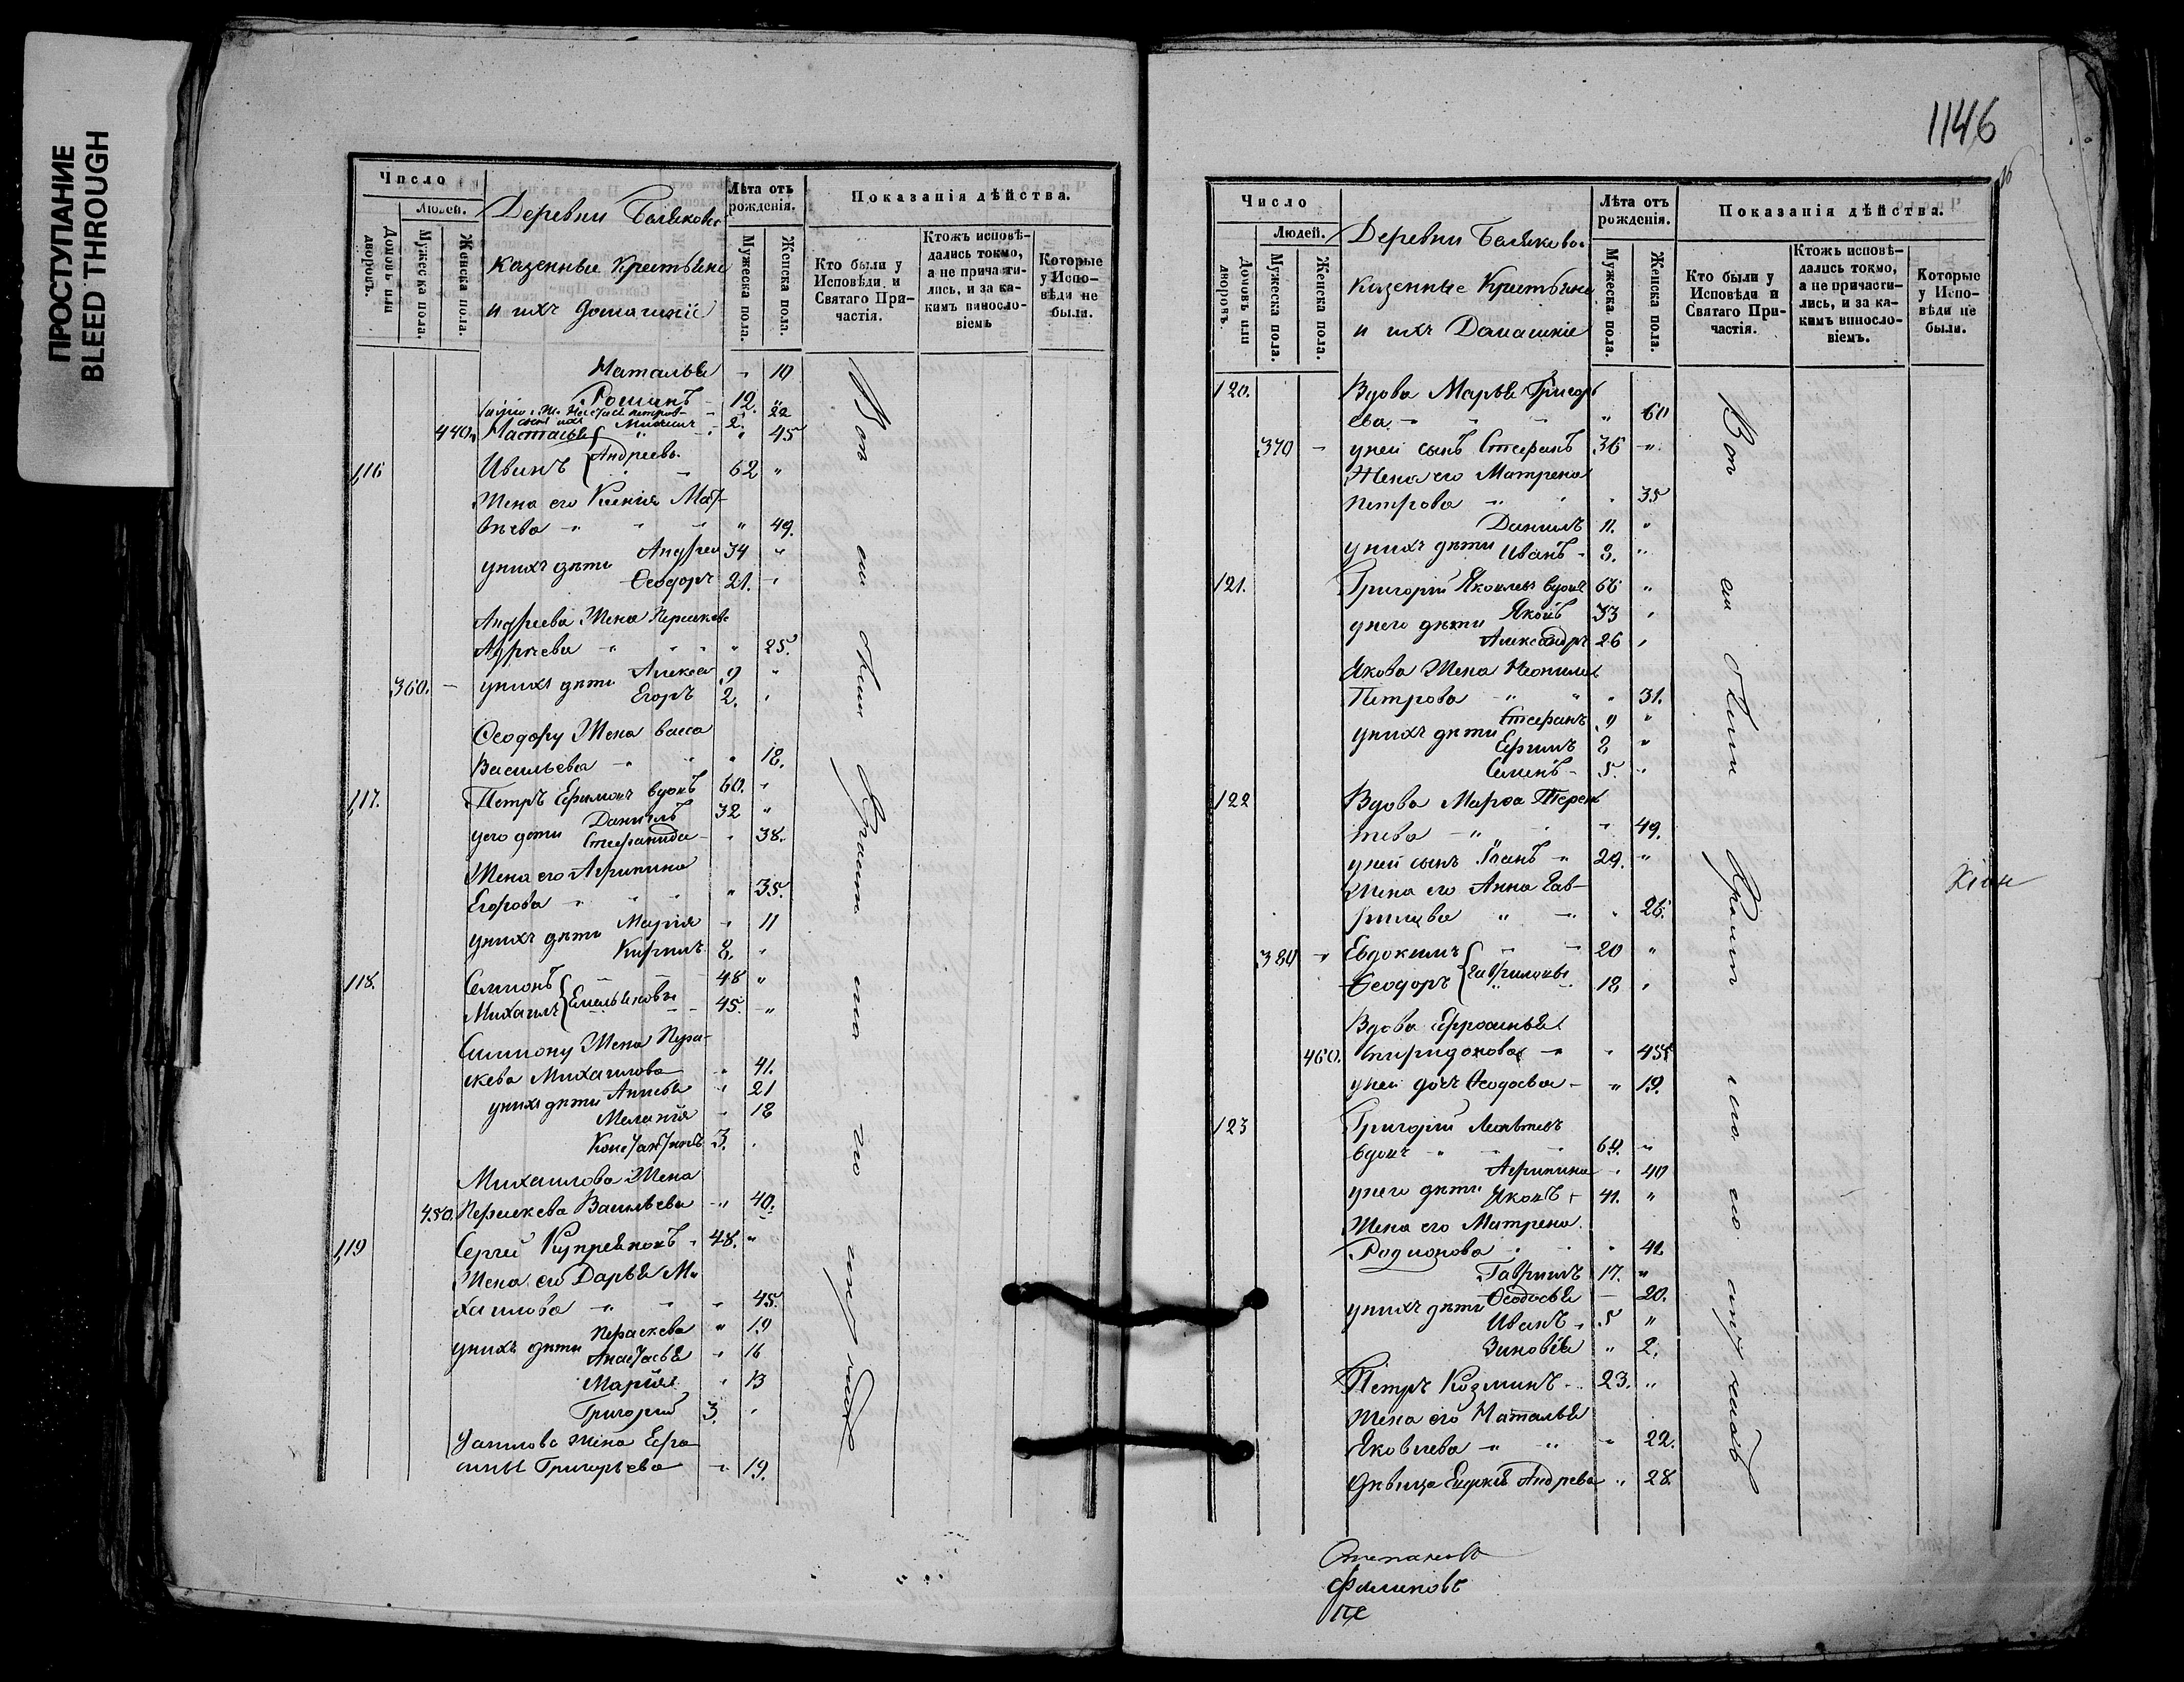 ПРОСТУПАНИЕ
BLEED THROUGH
Число
Людей.
Домовъ или дворовъ.
Мужеска пола.
Женска пола.
Деревни
казенные Крестьяне
и ихъ Домашніе
Лѣта отъ рожденія.
Мужеска пола.
Женска пола.
Показанія дѣйства.
Кто были у Исповѣди и Святаго Причастія.
Ктожъ исповѣдались токмо, а не причастились, и за какимъ винословіемъ
Которые у Исповѣди не были.
Наталья " 10
Романъ 12. "
440.
116 Иванъ Андреевъ 62 "
Жена его Ксенія Мат-
вѣева " " 49.
у нихъ дѣти Андрей 34 "
Ѳеодоръ 21. "
Андреева Жена
" 25.
360. у нихъ дѣти Алексей 9 "
Егоръ 2. "
Ѳеодору Жена Васса
Васильева " 18.
117. Петръ Ефимовъ вдовъ 60. "
у его дѣти Даніилъ 32 "
Стефанида " 38.
Жена его Агрипина
Егорова " 35.
у нихъ дѣти Марія " 11
Кирилъ 8. "
118. Семионъ 48 "
Михаилъ Емельяновы 45. "
Симиону Жена Пера-
скева Михаилова " 41.
у нихъ дѣти Анисья " 21
Меланія " 18
Константинъ 3. "
Михаилова Жена
450. Пераскева Васильева " 40.
119 Сергей Купреяновъ 48. "
Жена его Дарья Ми
хаилова " 45.
у нихъ дѣти Пераскева " 19
Анастасья " 16
Марія " 13
Григорій 3. "
Жена Евфро
Григорьева " 19.
1146
Число
Людей.
Домовъ или дворовъ.
Мужеска пола.
Женска пола.
Деревни
Казенные Крестьяне
и ихъ Домашніе
Лѣта отъ рожденія.
Мужеска пола.
Женска пола.
Показанія дѣйства.
Кто были у Исповѣди и Святаго Причастія.
Ктожъ исповѣдались токмо, а не причастились, и за какимъ винословіемъ.
Которые у Исповѣди не были.
120. Вдова Марья Григорь
ева " 60
370 у ней сынъ Стефанъ 36 "
Жена его Матрена
Петрова " 35
Даниилъ 11. "
у нихъ дѣти Иванъ 8. "
121. Григорій Яковлевъ вдовъ 66 "
у него дѣти Яковъ 33 "
Александръ 26 "
Якова Жена Неонила
Петрова " 31.
у нихъ дѣти Стефанъ 9 "
Ефимъ 8 "
Семенъ 5. "
122 Вдова Марѳа Терен
тева " 49.
у ней сынъ Іоанъ 29. "
Жена его Анна Гав-
рилова " 26.
380 Евдокимъ 20 "
Ѳеодоръ Гавриловы 18 "
Вдова Ефросинья
460. Спиридонова " 45
у ней дочь Ѳеодосья " 19.
123 Григорій Леонтьевъ
вдовъ 64. "
у него дѣти Агрипина " 40
Яковъ 41. "
Жена его Матрена
Родионова " 41.
Гаврилъ 17. "
у нихъ дѣти Ѳеодосья 20.
Иванъ 5 "
Зиновія " 2.
Петръ Козминъ 23. "
Жена его Наталья
Яковлева " 22.
Дѣвица Андреева " 28.